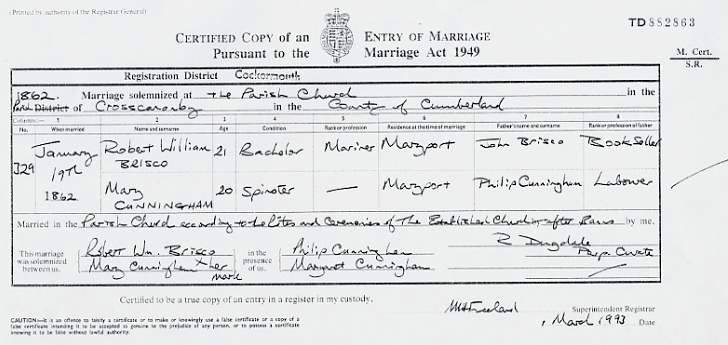 (Printed by authority of the Registrar General)
TD 882863
CERTIFIED COPY of an ENTRY OF MARRIAGE
Pursuant to the Marriage Act 1949
M. Cert.
S.R.
Registration District Cockermouth
1862. Marriage solemnized at the Parish Church in the
Parish District of Crosscanonby in the County of Cumberland
Columns:— 1 2 3 4 5 6 7 8
No. When married Name and surname Age Condition Rank or profession Residence at the time of marriage Father's name and surname Rank or profession of father
329 January 19th 1862 Robert William BRISCO 21 Bachelor Mariner Maryport John Brisco Bookseller
Mary CUNNINGHAM 20 Spinster — Maryport Philip Cunningham Labourer
Married in the Parish Church according to the Rites and Ceremonies of the Established Church, after Banns by me.
R Dugdale
Perp. Curate
This marriage was solemnized between us,
Robert Wm. Brisco
Mary Cunningham X her mark
in the presence of us.
Philip Cunningham
Margaret Cunningham
Certified to be a true copy of an entry in a register in my custody.
Superintendent Registrar
March 1993 Date
CAUTION:—It is an offence to falsify a certificate or to make or knowingly use a false certificate or a copy of a
false certificate intending it to be accepted as genuine to the prejudice of any person, or to possess a certificate
knowing it to be false without lawful authority.